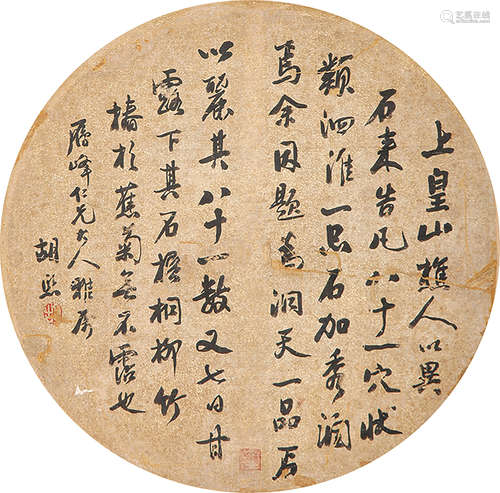 上皇山樵人以異
石來告凡八十一穴狀
類泗淮一品石加秀潤
焉余因題為洞天一品石
以麗其八十一數又七日甘
露下其石梧桐柳竹
椿杉蕉菊無不霑也
峰仁兄大人雅屬
胡